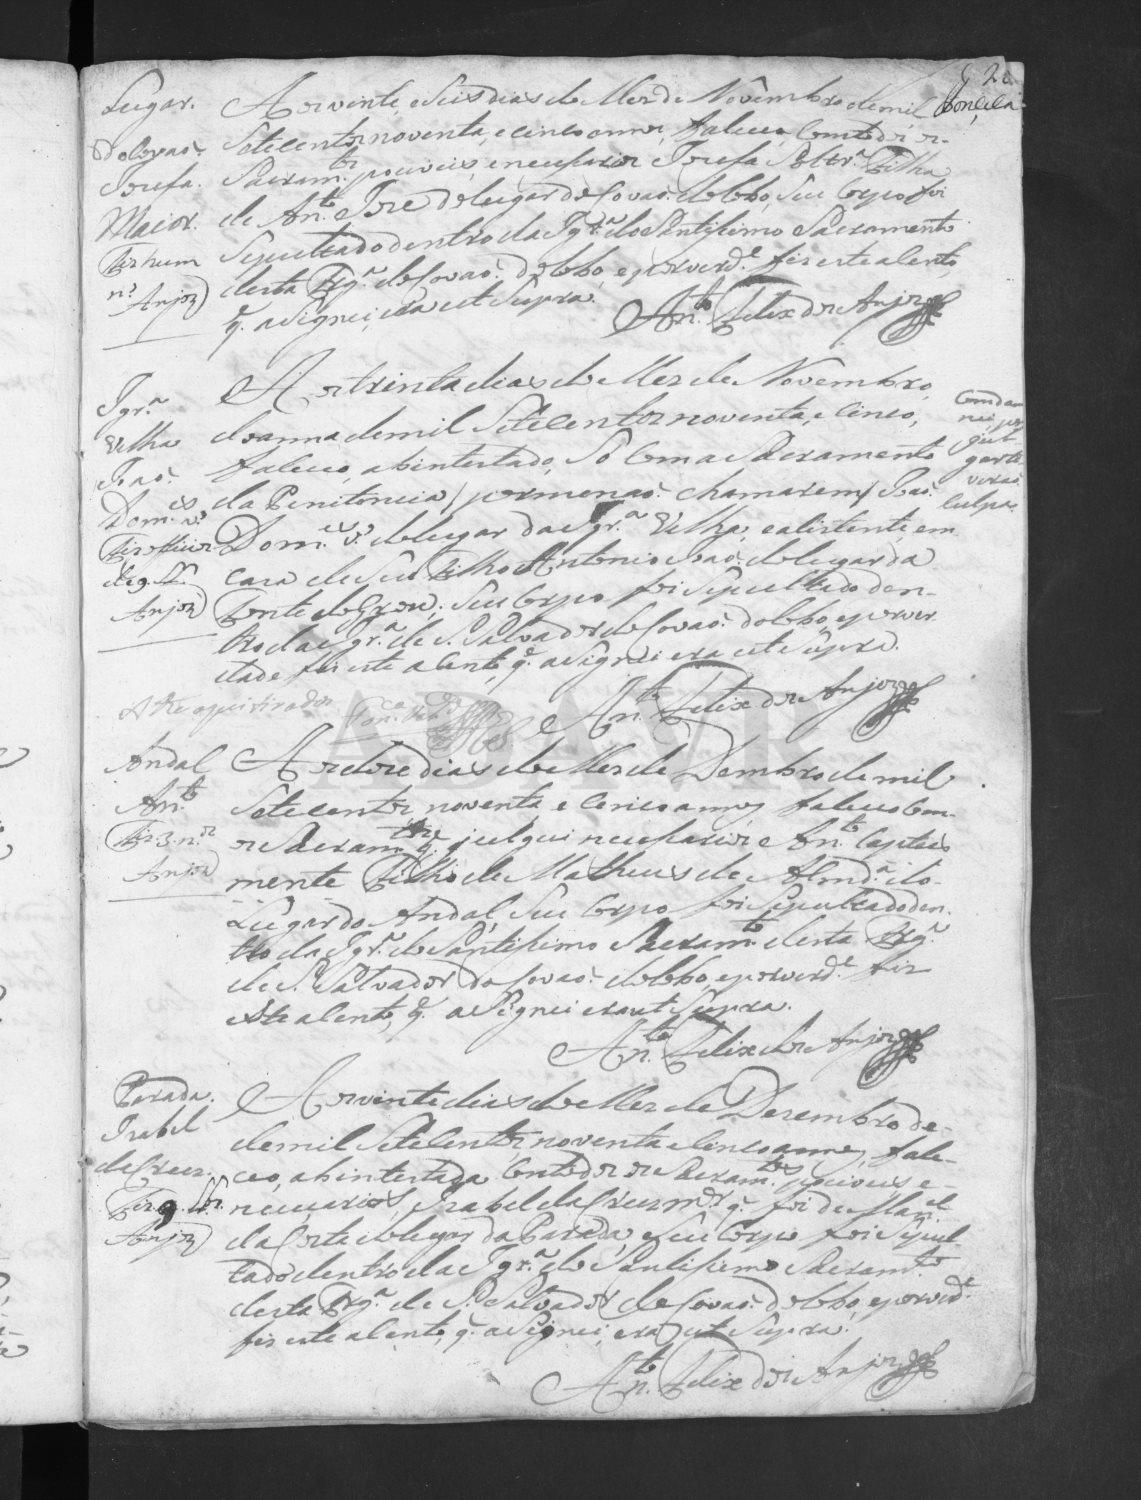 Lugar.
do Covaõ.
Josefa.
Maior.
Fis hum
n.º
Anjos
Aos vinte, e Seis dias do Mes de Novembro de mil
Setecentos noventa, e cinco annos, faleceo, Com todos os
Sacram.tos possiveis, e necessarios Josefa Soltr.ª Filha
de An.to Jose do lugar do Covaõ. do lobo, Seu Corpo foi
Sepultado dentro da Igr.ª do Santissimo Sacramento
desta Frg.ª do Covaõ. do lobo, e por verd.e fis este asento,
q̃. asignei, era ut Supra.
An.to Felix dos Anjos
Igr.ª
Velha
Joaõ.
Dom.es v.º
Fis officio
de 9. L.
Anjos
Aos trinta dias do Mes de Novembro,
do anno de mil Setecentos noventa, e Cinco,
faleceo, abintestado, Só Com a Sacramento
da Penitencia / por me naõ. chamarem / Joaõ.
Dom.es v.º do lugar da Igr.ª Velha, e asistente, em
caza de Seu Filho Antonio Joaõ. do lugar da
Fonte do Grou; Seu Corpo foi Sepultado den-
tro da Igr.ª de S. Salvador do Covaõ. do lobo, e por ver
dade fis este asento, q̃. asignei era ut Supra.
An.to Felix dos Anjos
Condam
nei, por
que
parte
veraõ
culpa.
Andal
An.to
Fis 3. n.os
Anjos
Aos doze dias do Mes de Dembro de mil
Setecentos, noventa e Cinco annos faleceo Com
os Sacram.tos q̃. julguei necessarios An.to Captivo
mente Filho de Matheus de Almd.ª do
Lugar do Andal, Seu Corpo foi Sepultado den
tro da Igr.ª do Santissimo Sacram.to desta Frg.ª
de S. Salvador do Covaõ. do lobo, e por verd.e fis
este asento, q̃. asignei era ut Supra.
An.to Felix dos Anjos
Parada.
Izabel
da Cruz.
Fis 9. L.
Anjos
Aos vinte dias do Mes de Dezembro de
de mil Setecentos, noventa e Cinco annos, fale-
ceo, abintestada Com todos os Sacram.tos possiveis e
necesarios, Izabel da Cruz m.er q̃. foi de Man.el
da Costa do lugar da Parada, e Seu Corpo foi Sepul
tado dentro da Igr.ª do Santissimo Sacram.to
desta Frg.ª de S. Salvador do Covaõ. do lobo, e por verd.e
fis este asento, q̃. asignei, era ut Supra.
An.to Felix dos Anjos